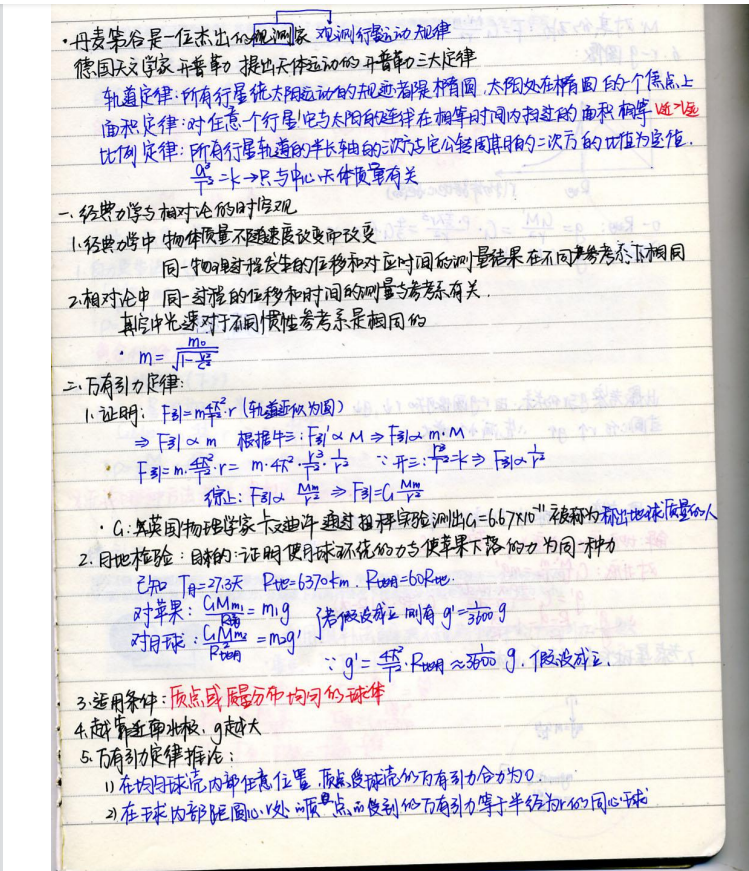 ·丹麦第谷是一位杰出的观测家 观测行星运动规律
德国天文学家开普勒 提出天体运动的开普勒三大定律
轨道定律:所有行星绕太阳运动的轨迹都是椭圆,太阳处在椭圆的一个焦点上
面积定律:对任意一个行星,它与太阳的连线在相等时间内扫过的面积相等 V近>V远
比例定律:所有行星轨道的半长轴的三次方与它公转周期的二次方的比值为定值.
a³/T²=k→只与中心天体质量有关
一、经典力学与相对论的时空观
1.经典力学中 物体质量不随速度改变而改变
同一物理过程发生的位移和对应时间的测量结果在不同参考系下相同
2.相对论中 同一过程的位移和时间的测量与参考系有关.
真空中光速对于不同惯性参考系是相同的
· m=m₀/√(1-v²/c²)
二、万有引力定律:
1.证明: F引=m4π²/T²·r (轨道近似为圆)
⇒F引∝m 根据牛三:F引'∝M⇒F引∝m·M
F引=m·4π²/T²·r=m·4π²·r³/T²·1/r² ∵开三:r³/T²=k⇒F引∝1/r²
综上:F引∝Mm/r² ⇒F引=G Mm/r²
·G:英国物理学家卡文迪许通过扭秤实验测出G=6.67×10⁻¹¹ 被称为称出地球质量的人
2.月地检验:目的:证明使月球环绕的力与使苹果下落的力为同一种力
已知 T月=27.3天 R地=6370km. R地月=60R地.
对苹果:GMm₁/R地²=m₁g
对月球:GMm₂/R地月²=m₂g'
若假设成立 则有 g'=1/3600 g
∵g'=4π²/T²·R地月≈1/3600 g. 假设成立.
3.适用条件:质点或质量分布均匀的球体
4.越靠近两极,g越大
5.万有引力定律推论:
1)在均匀球壳内部任意位置,质点受球壳的万有引力合力为0
2)在球内部距圆心r处 质点受到的万有引力等于半径为r的同心球